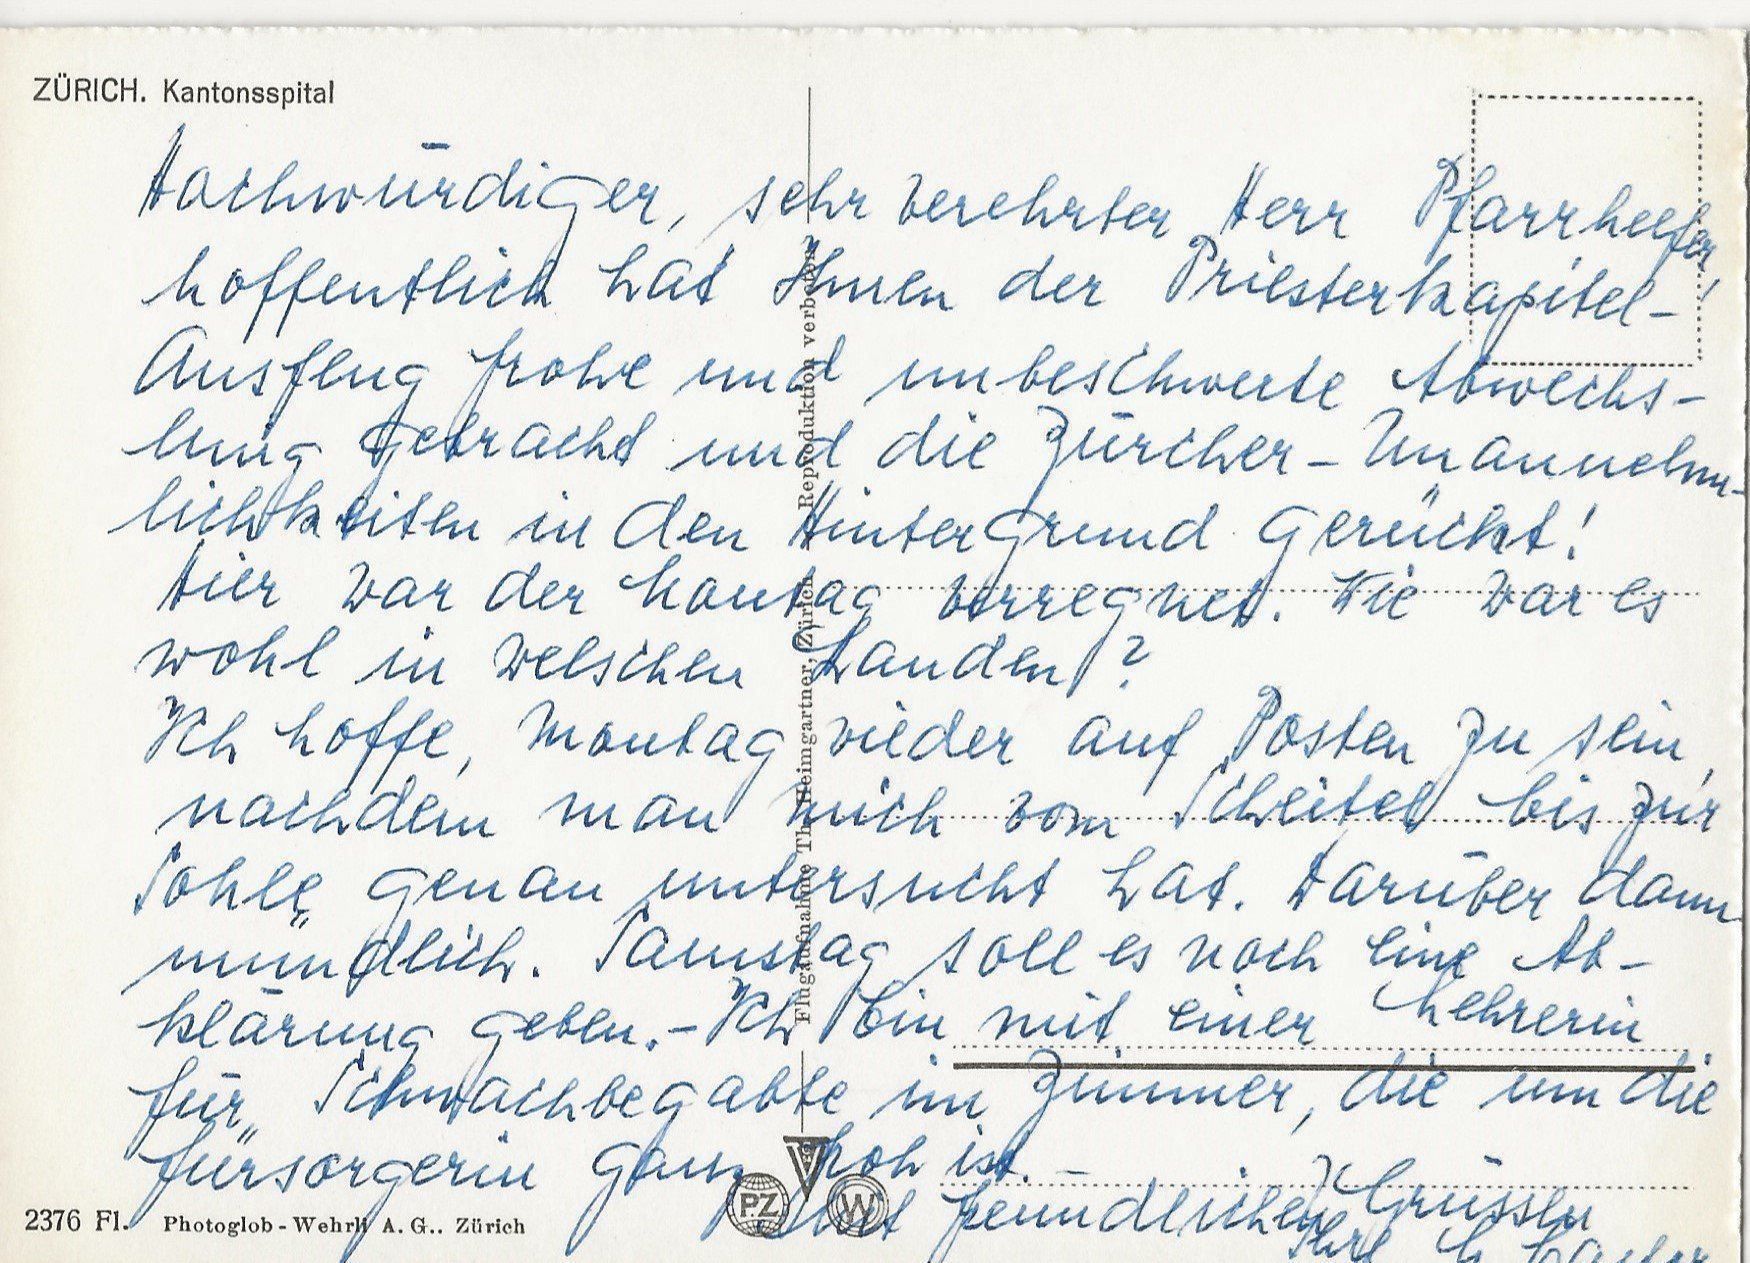 ZÜRICH. Kantonsspital
Hochwürdiger, sehr verehrter Herr Pfarrhelfer,
hoffentlich hat Ihnen der Priesterkapitel-
Ausflug frohe und unbeschwerte Abwechs-
lung gebracht und die Zürcher-Unannehm-
lichkeiten in den Hintergrund gerückt!
Hier war der Montag verregnet. Wie war es
wohl in welschen Landen?
Ich hoffe, Montag wieder auf Posten zu sein,
nachdem man mich vom Scheitel bis zur
Sohle genau untersucht hat. Darüber dann
mündlich. Samstag soll es noch eine Ab-
klärung geben. - Ich bin mit einer Lehrerin
für Schwachbegabte im Zimmer, die um die
Fürsorgerin ganz froh ist. -
Mit freundlichen Grüssen
Ihre
Reproduktion verboten
Flugaufnahme Th. Heimgartner, Zürich
PZ
W
2376 Fl. Photoglob-Wehrli A. G., Zürich